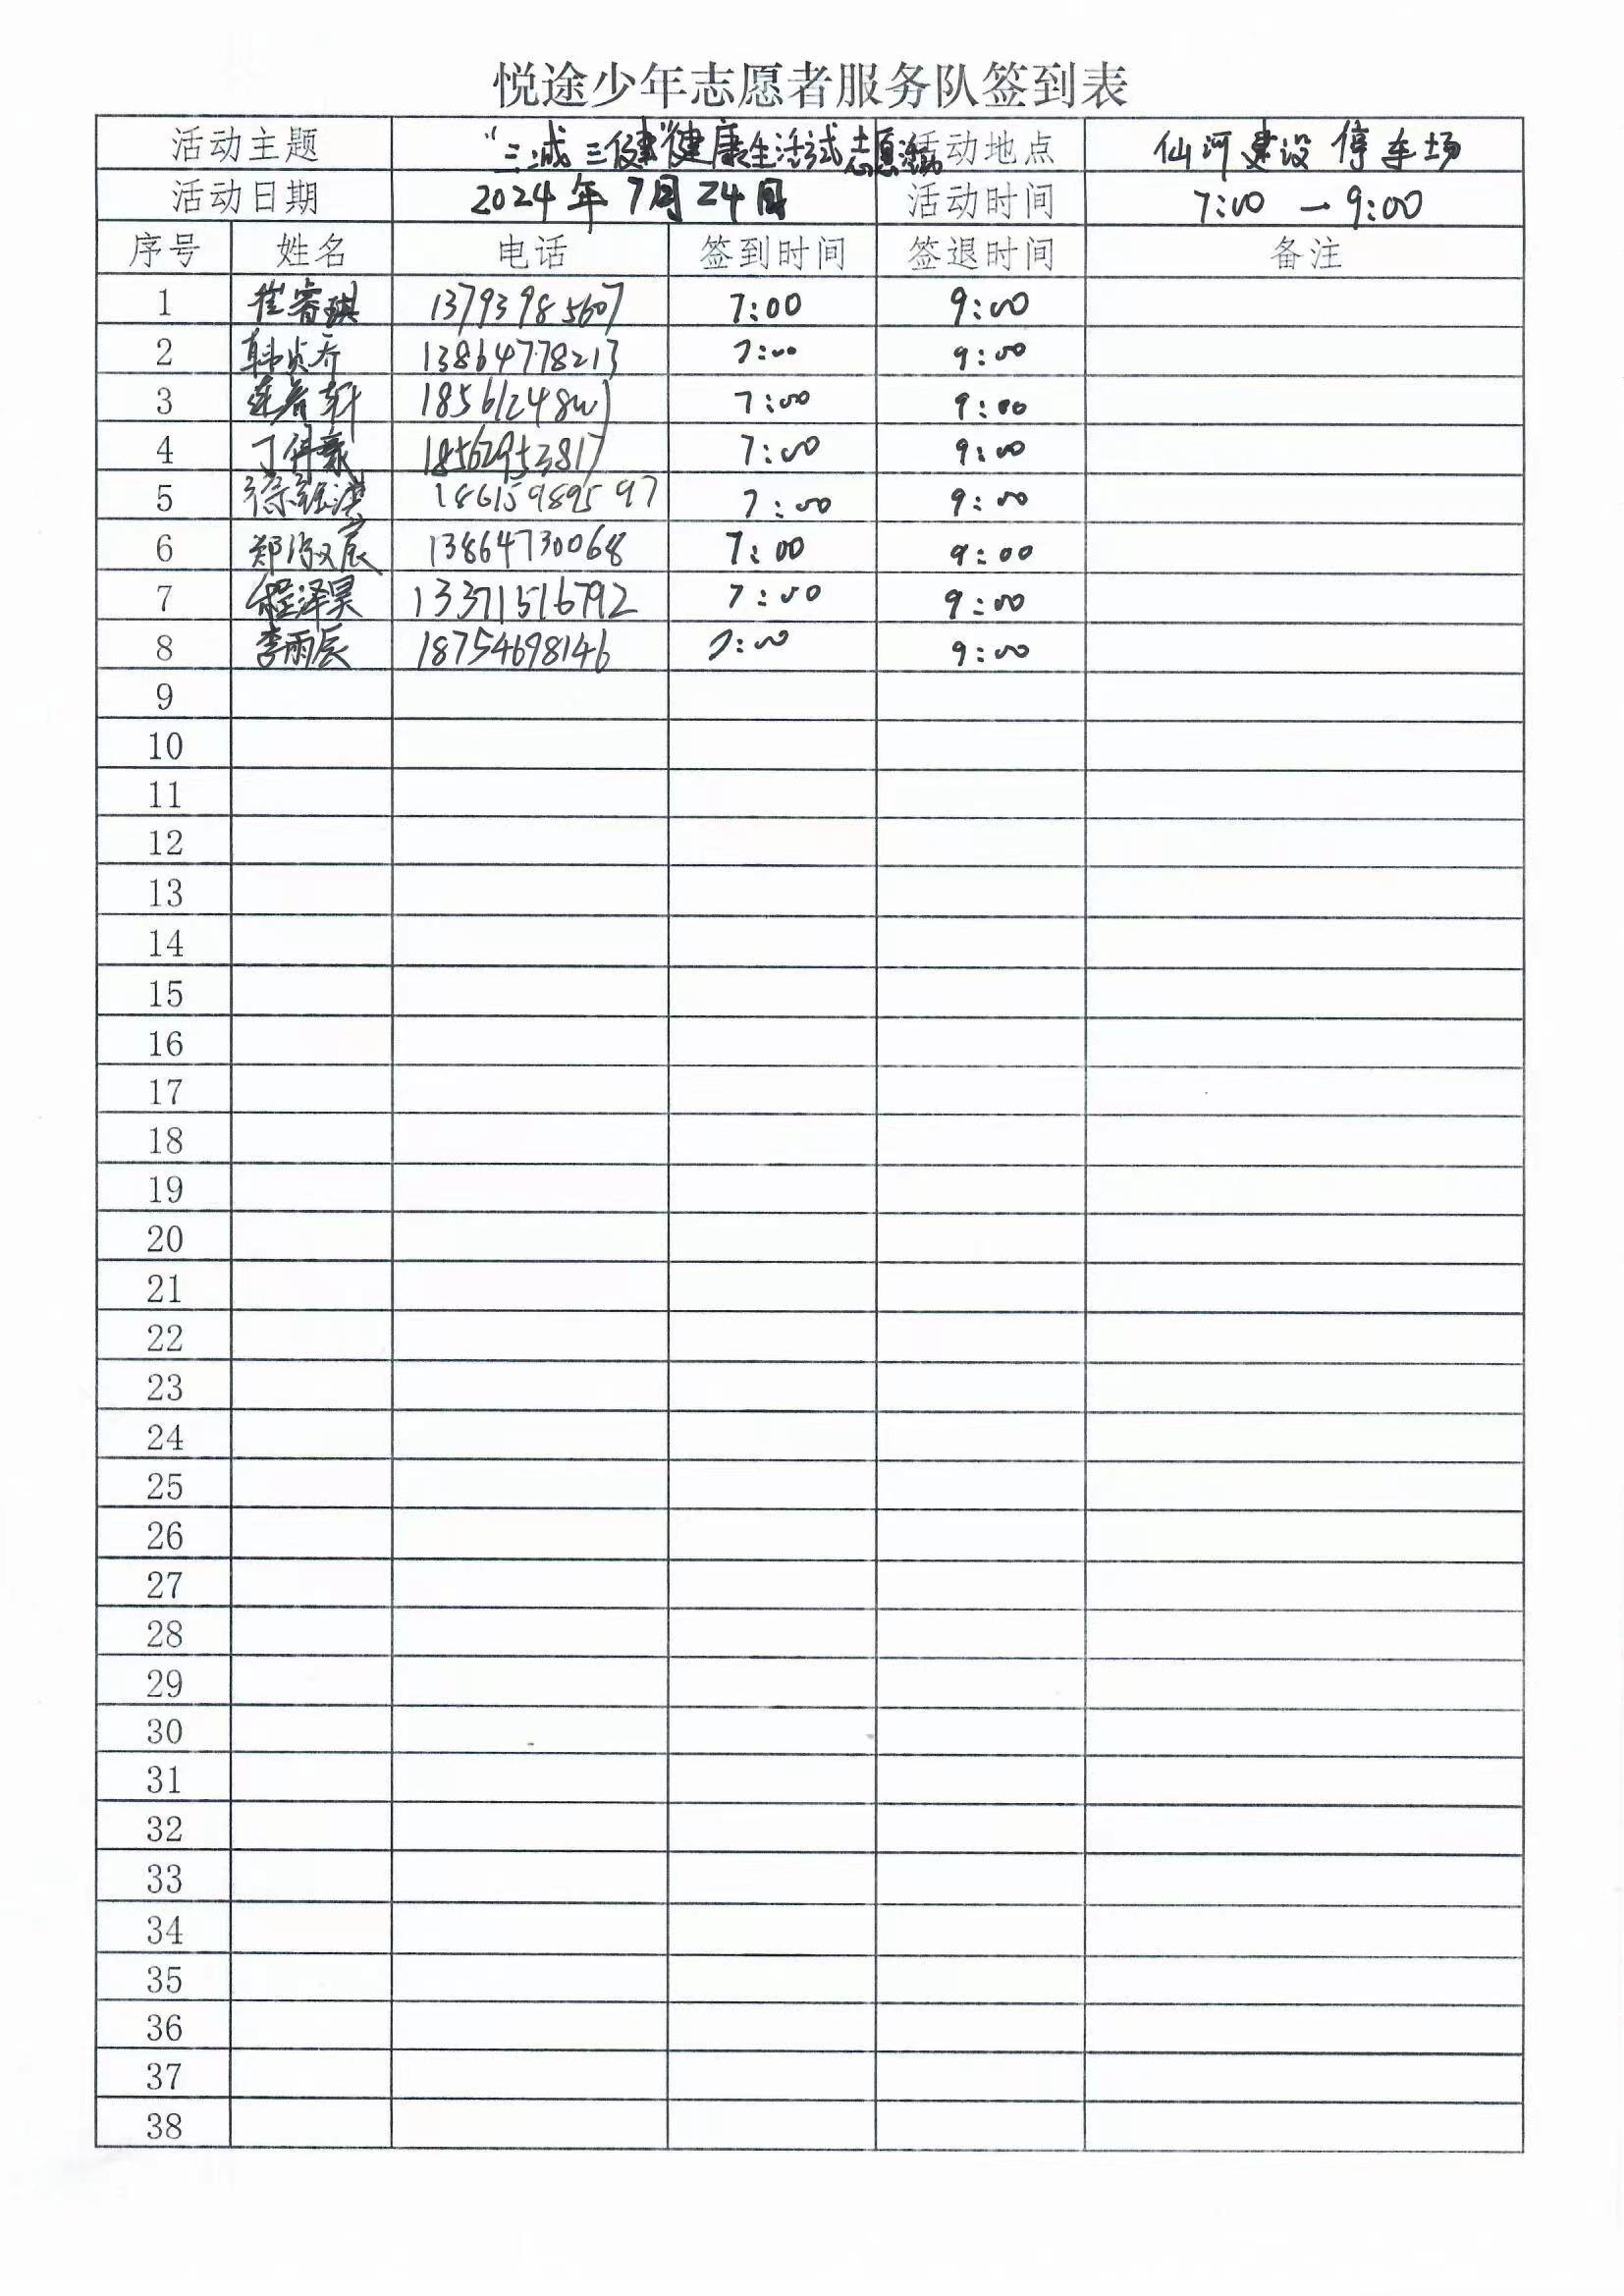 悦途少年志愿者服务队签到表
活动主题 "三减三健"健康生活试志愿活动 活动地点 仙河建设停车场
活动日期 2024年7月24日 活动时间 7:00 — 9:00
序号 姓名 电话 签到时间 签退时间 备注
1 崔睿琪 13793985607 7:00 9:00
2 韩贞乔 13864778213 7:00 9:00
3 7:00 9:00
4 丁 18562953817 7:00 9:00
5 徐钰 18615989597 7:00 9:00
6 郑 宸 13864730068 7:00 9:00
7 程泽昊 13371516792 7:00 9:00
8 李雨辰 18754698146 7:00 9:00
9
10
11
12
13
14
15
16
17
18
19
20
21
22
23
24
25
26
27
28
29
30
31
32
33
34
35
36
37
38